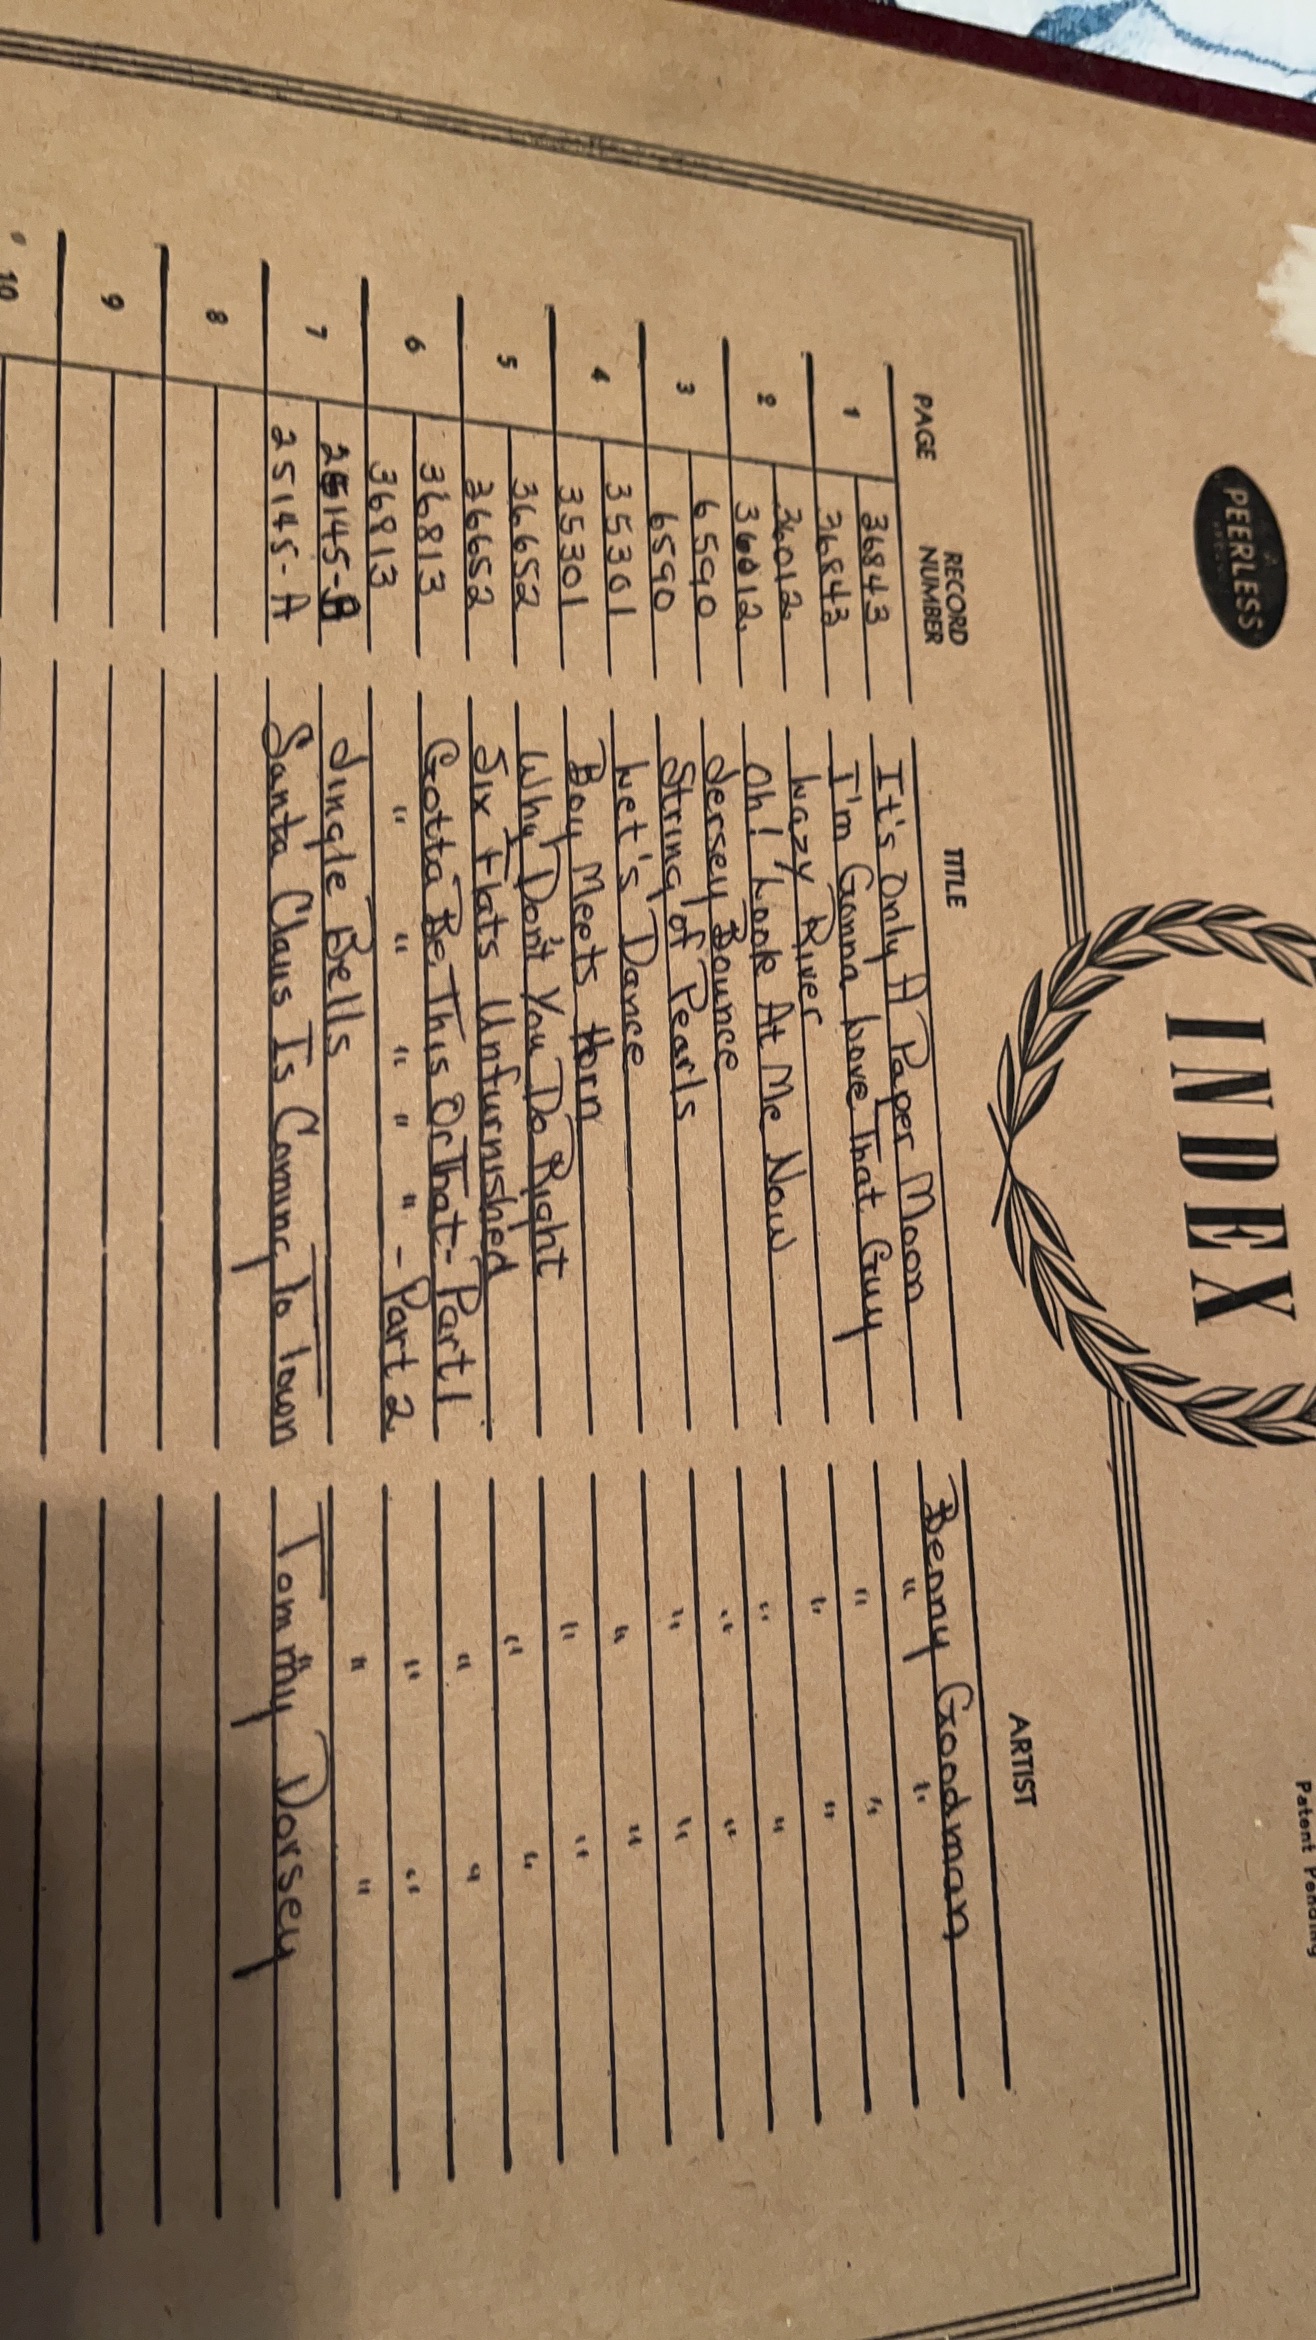 PEERLESS
INDEX
Patent Pending
PAGE RECORD NUMBER TITLE ARTIST
1 36843 It's Only A Paper Moon Benny Goodman
36843 I'm Gonna Love That Guy " "
2 36012 Lazy River " "
36012 Oh! Look At Me Now " "
3 6590 Jersey Bounce " "
6590 String of Pearls " "
4 35301 Let's Dance " "
35301 Boy Meets Horn " "
5 36652 Why Don't You Do Right " "
36652 Six Flats Unfurnished " "
6 36813 Gotta Be This Or That - Part 1 " "
36813 " " " " " - Part 2 " "
7 25145-B Jingle Bells " "
25145-A Santa Claus Is Coming To Town Tommy Dorsey
8
9
10